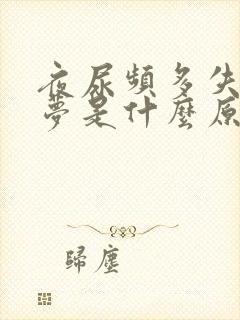 夜尿頻多失
夢是什麼原
歸塵